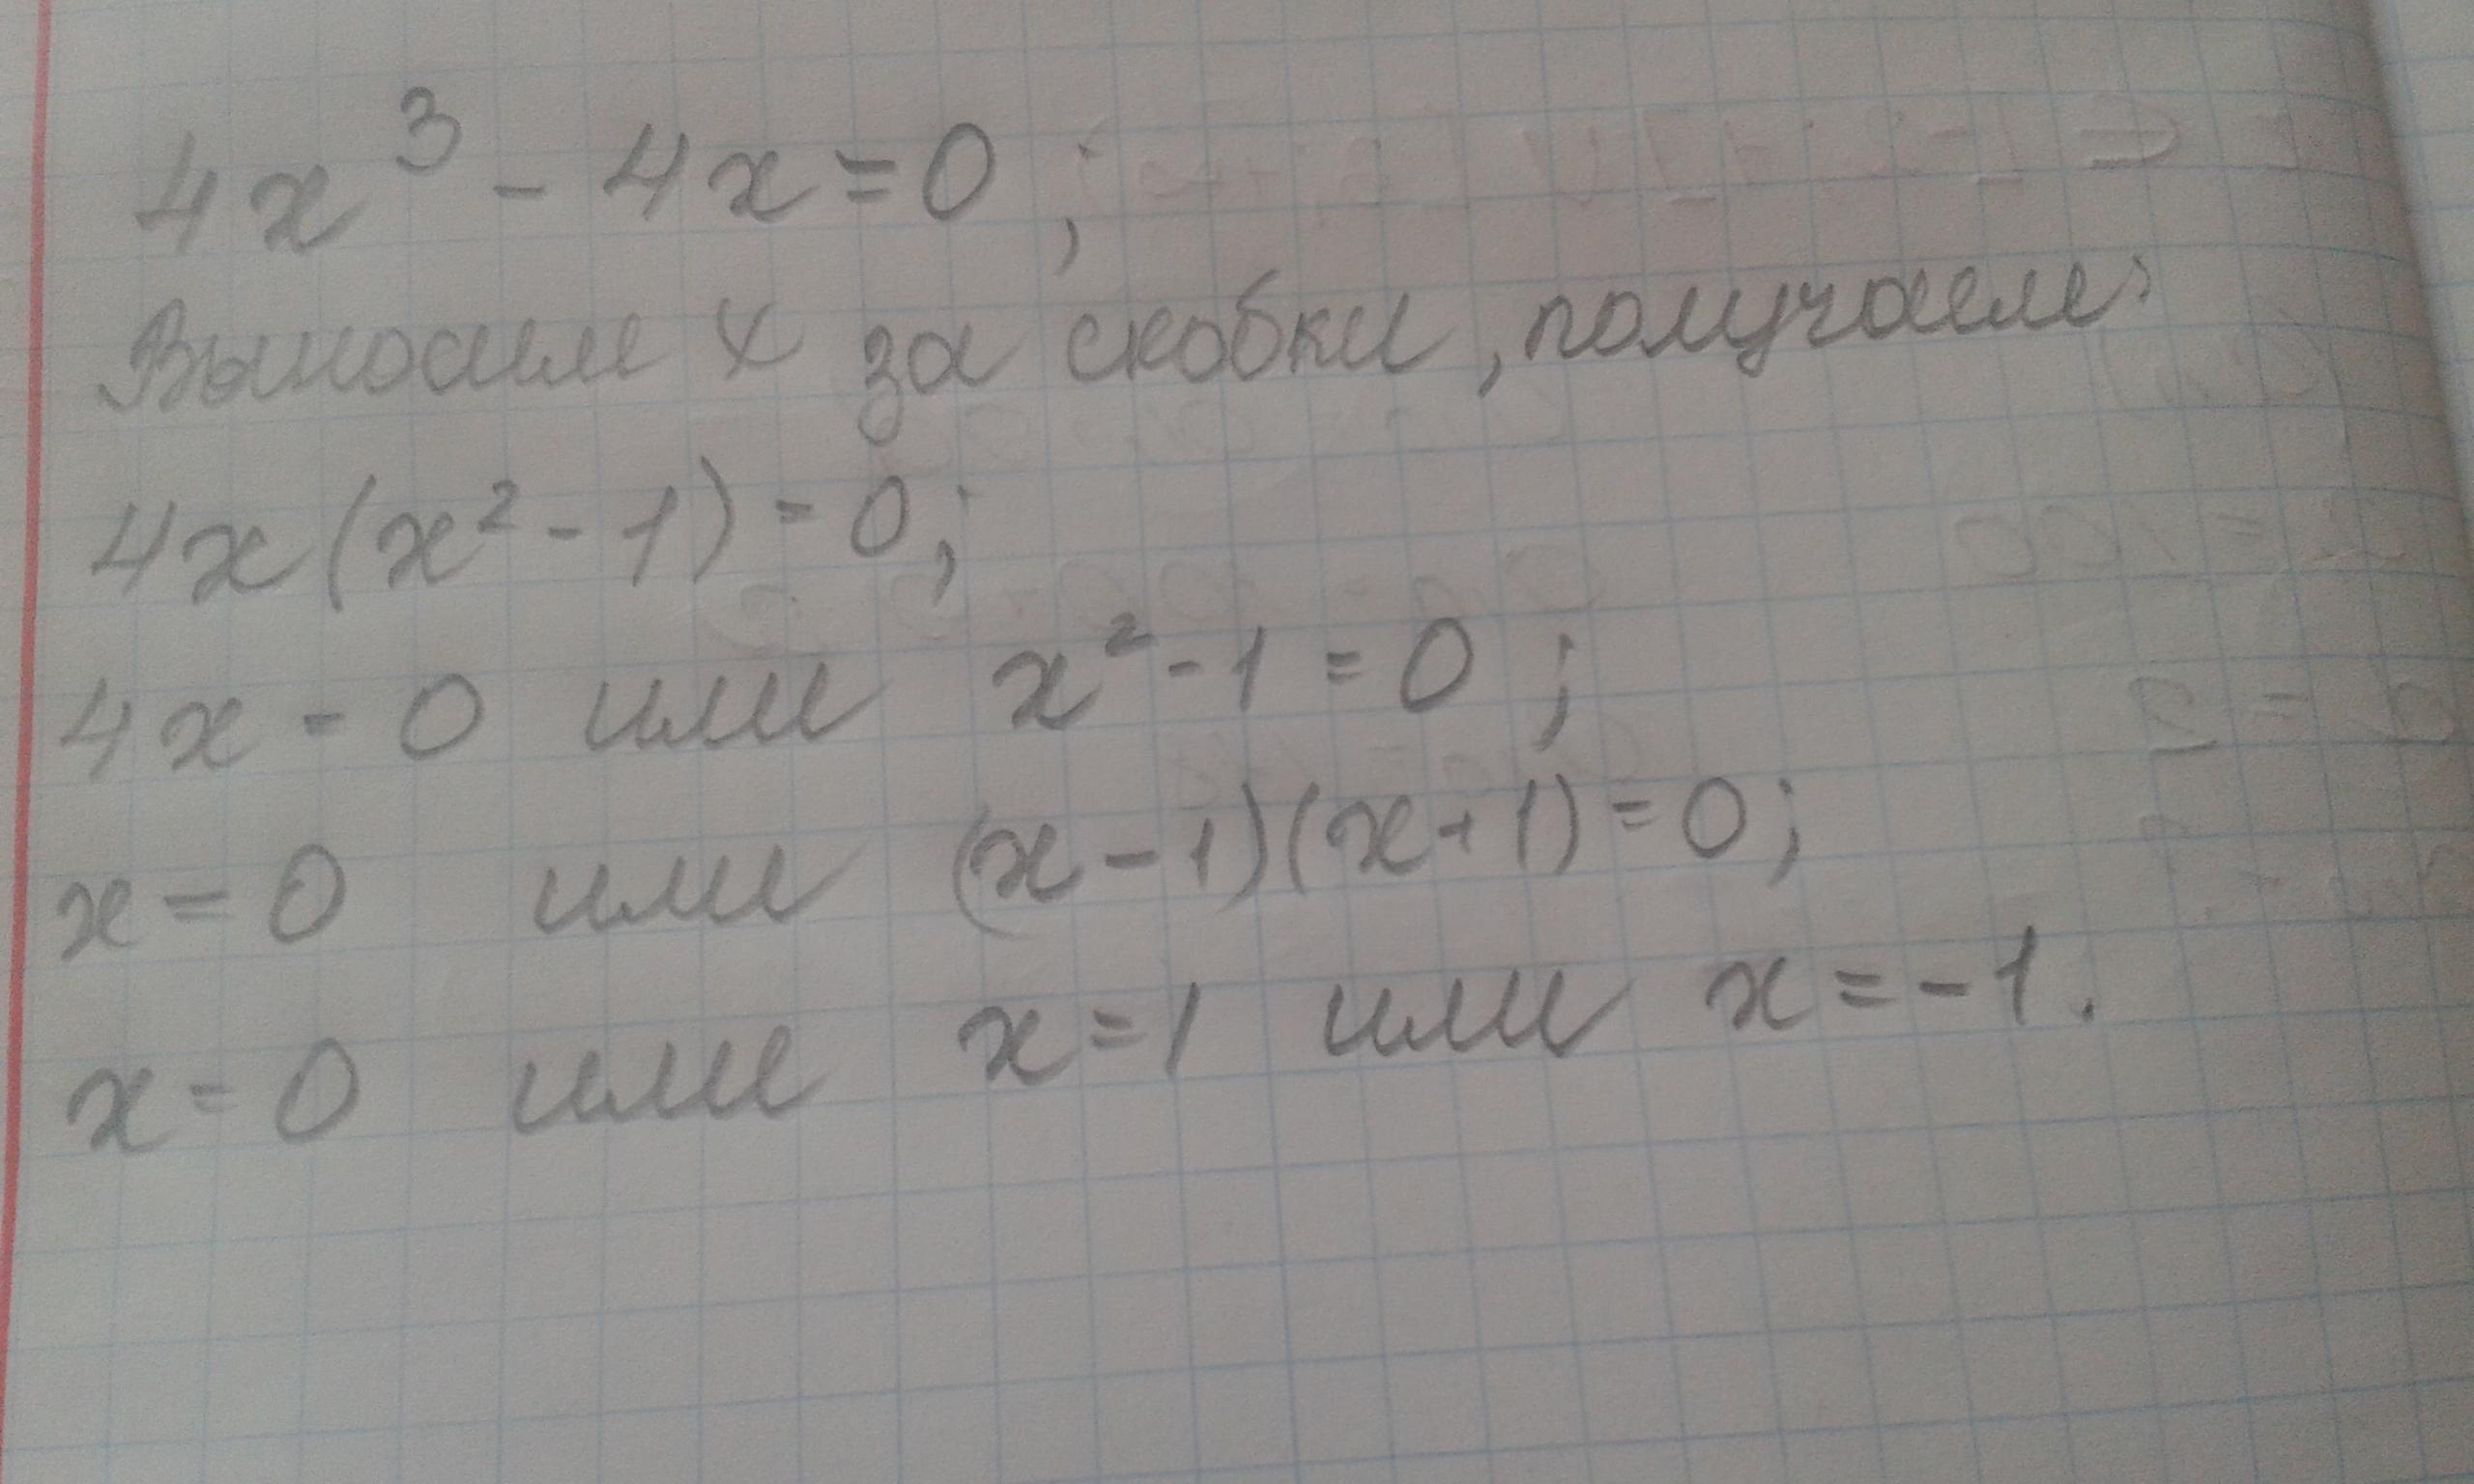 4x³ - 4x = 0 ;
Выносим x за скобки, получаем:
4x(x² - 1) = 0;
4x = 0 или x² - 1 = 0 ;
x = 0 или (x - 1)(x + 1) = 0;
x = 0 или x = 1 или x = - 1.